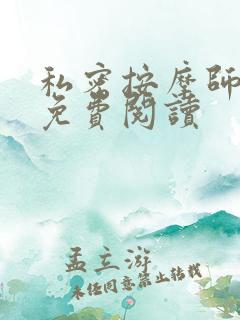 私密按摩師
免費閱讀
孟立游
未经同意禁止转载